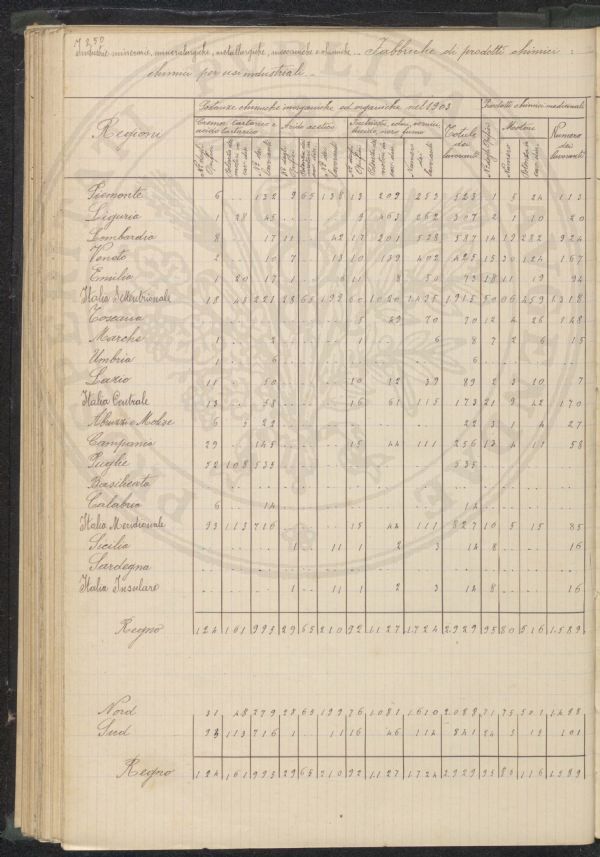 Industrie minerarie, mineralurgiche, metallurgiche, meccaniche e chimiche. Fabbriche di prodotti chimici:
chimici per usi industriali.
Regioni
Sostanze chimiche inorganiche ed organiche nel 1903 Prodotti chimici medicinali
Cremor tartarico e acido tartarico Acido acetico Totale dei lavoranti Motore Numero dei lavoranti
Piemonte 6 132 9 65 138 13 209 253 523 1 5 24 113
Liguria 1 28 45 9 463 262 307 2 1 10 20
Lombardia 8 17 11 42 17 201 528 587 14 19 282 924
Veneto 2 10 7 13 10 139 402 425 15 30 124 167
Emilia 1 20 17 1 6 11 8 50 73 18 11 19 94
Italia Settentrionale 18 48 221 28 65 199 60 1020 1495 1915 50 66 459 1318
Toscana 5 49 70 70 12 4 26 148
Marche 1 2 1 6 8 7 2 6 15
Umbria 1 6 6
Lazio 11 50 10 12 39 89 2 3 10 7
Italia Centrale 13 58 16 61 115 173 21 9 42 170
Abruzzi e Molise 6 5 22 22 3 1 4 27
Campania 29 145 15 44 111 256 13 4 11 58
Puglie 52 108 535 535
Basilicata
Calabria 6 14 14
Italia Meridionale 93 113 716 15 44 111 827 10 5 15 85
Sicilia 1 11 1 2 3 14 8 16
Sardegna
Italia Insulare 1 11 1 2 3 14 8 16
Regno 124 161 995 29 65 210 92 1127 1724 2929 95 80 516 1589
Nord 31 48 279 28 65 199 76 1081 1610 2088 71 75 501 1488
Sud 93 113 716 1 11 16 46 114 841 24 5 15 101
Regno 124 161 995 29 65 210 92 1127 1724 2929 95 80 516 1589